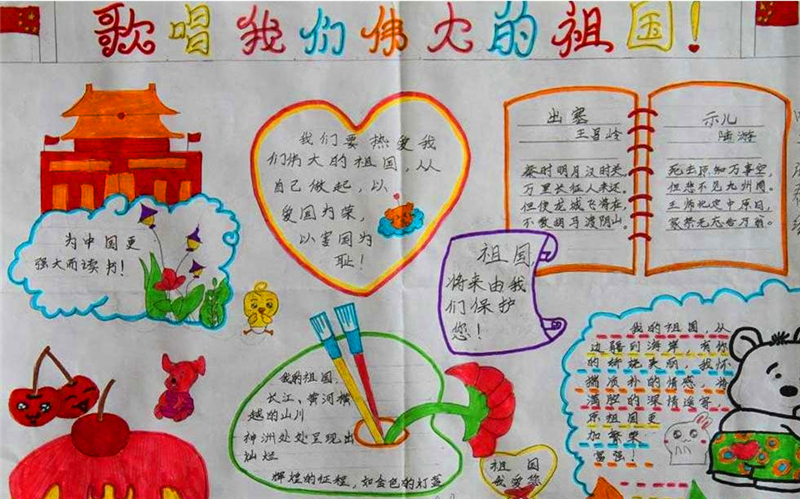 歌唱我们伟大的祖国！
我们要热爱我
们伟大的祖国，从
自己做起，以
爱国为荣，
以害国为
耻！
为中国更
强大而读书！
出塞
王昌龄
秦时明月汉时关，
万里长征人未还。
但使龙城飞将在，
不教胡马渡阴山。
示儿
陆游
死去原知万事空，
但悲不见九州同。
王师北定中原日，
家祭无忘告乃翁。
祖国，
将来由我
们保护
您！
我的祖国，
长江、黄河横
越的山川
神洲处处呈现出
灿烂
辉煌的征程，如金色的灯盏
祖国
我爱您
我的祖国，从
边疆到海岸 有你
的娇娆美丽 我怀
揣质朴的情感 将
满腔的深情遥寄
示祖国更
加繁荣
富强！